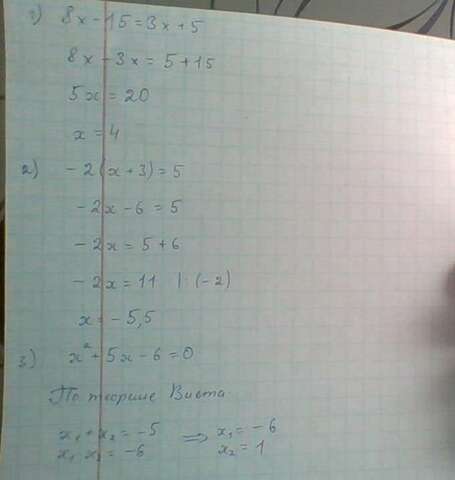 1) 8x - 15 = 3x + 5
8x - 3x = 5 + 15
5x = 20
x = 4
2) - 2(x + 3) = 5
- 2x - 6 = 5
- 2x = 5 + 6
- 2x = 11 | : (-2)
x = - 5,5
3) x² + 5x - 6 = 0
По теореме Виета
x₁ + x₂ = -5 ⇒ x₁ = -6
x₁ x₂ = -6 x₂ = 1